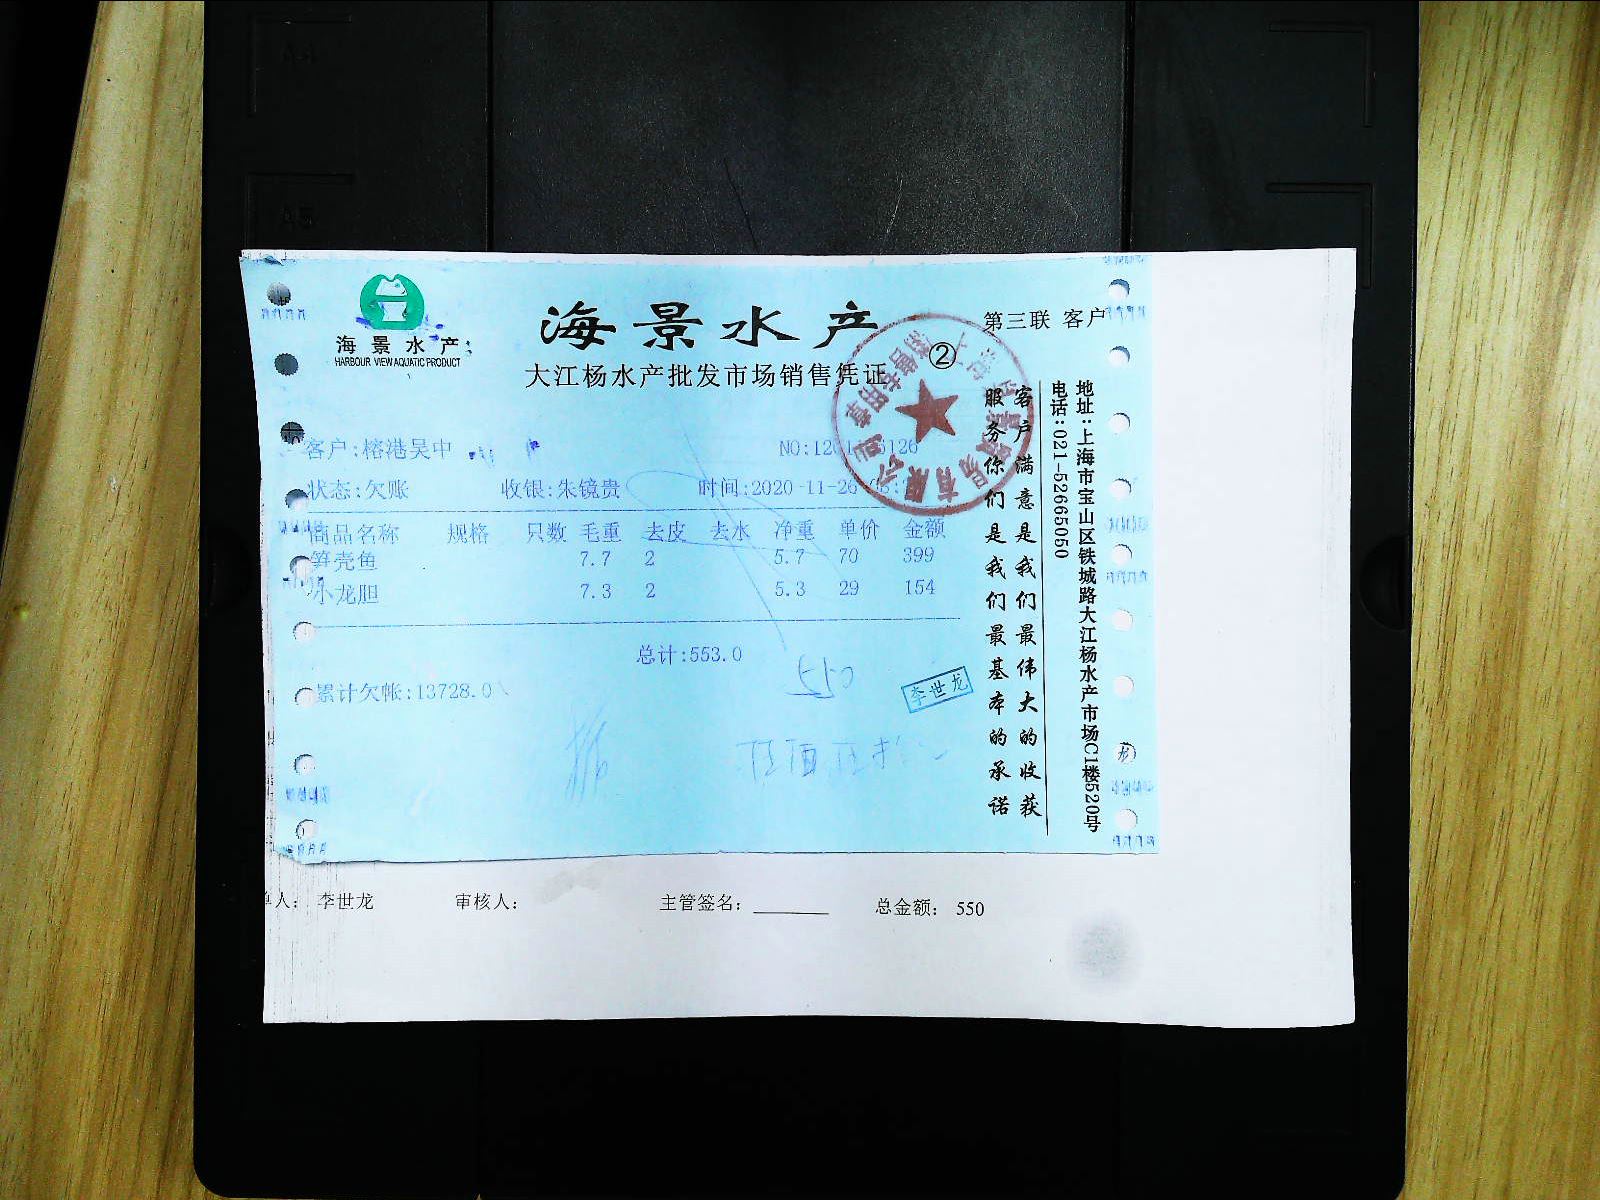 A4
A5
海景水产
HARBOUR VIEW AQUATIC PRODUCT
海景水产
大江杨水产批发市场销售凭证
②
第三联 客户
客户:榕港吴中
状态:欠账 收银:朱镜贵 时间:2020-11-26
商品名称 规格 只数 毛重 去皮 去水 净重 单价 金额
笋壳鱼 7.7 2 5.7 70 399
小龙胆 7.3 2 5.3 29 154
总计:553.0
550
累计欠帐:13728.0
李世龙
客户满意是我们最伟大的收获
服务你们是我们最基本的承诺
地址:上海市宝山区铁城路大江杨水产市场C1楼520号
电话:021-52665050
单人: 李世龙 审核人: 主管签名: 总金额: 550